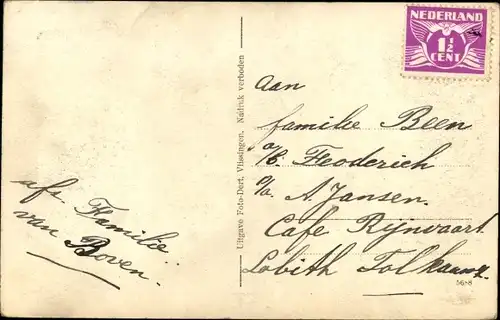 NEDERLAND
1½
CENT
Aan
familie Been
a/b. Feoderich
p/a A. Jansen.
Cafe Rijnvaart
Lobith Tolkamer
afz. Familie
van Boven.
Uitgave Foto-Dert, Vlissingen. Nadruk verboden
5658